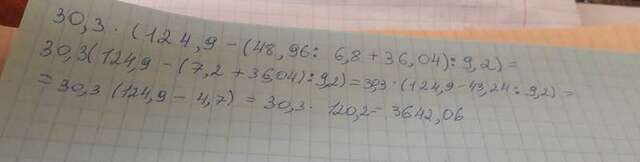 30,3 · (124,9 - (48,96 : 6,8 + 36,04) : 9,2) =
30,3(124,9 - (7,2 + 36,04) : 9,2) = 30,3 · (124,9 - 43,24 : 9,2) =
= 30,3 (124,9 - 4,7) = 30,3 · 120,2 = 3642,06